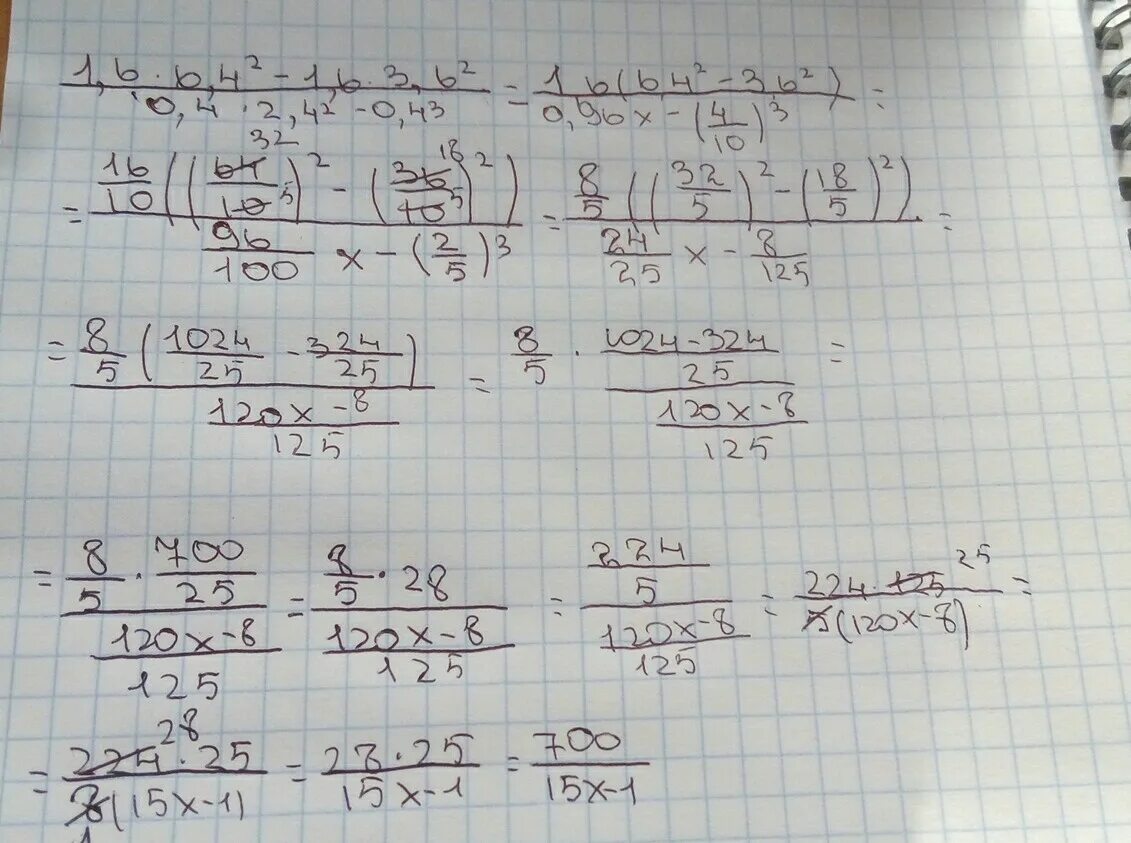 (1,6·6,4² - 1,6·3,6²)/(0,4·2,4² - 0,4³) = (1 6(6 4² - 3 6²))/(0,96x - (4/10)³) =
= (16/10((64/10)² - (36/10)²))/(96/100 x - (2/5)³) = (8/5((32/5)² - (18/5)²))/(24/25 x - 8/125) =
= (8/5(1024/25 - 324/25))/((120x - 8)/125) = (8/5 · (1024 - 324)/25)/((120x - 8)/125) =
= (8/5 · 700/25)/((120x - 8)/125) = (8/5 · 28)/((120x - 8)/125) = (224/5)/((120x - 8)/125) = (224·125 25)/(5(120x - 8)) =
= (224 28 · 25)/(8 1 (15x - 1)) = (28·25)/(15x - 1) = 700/(15x - 1)